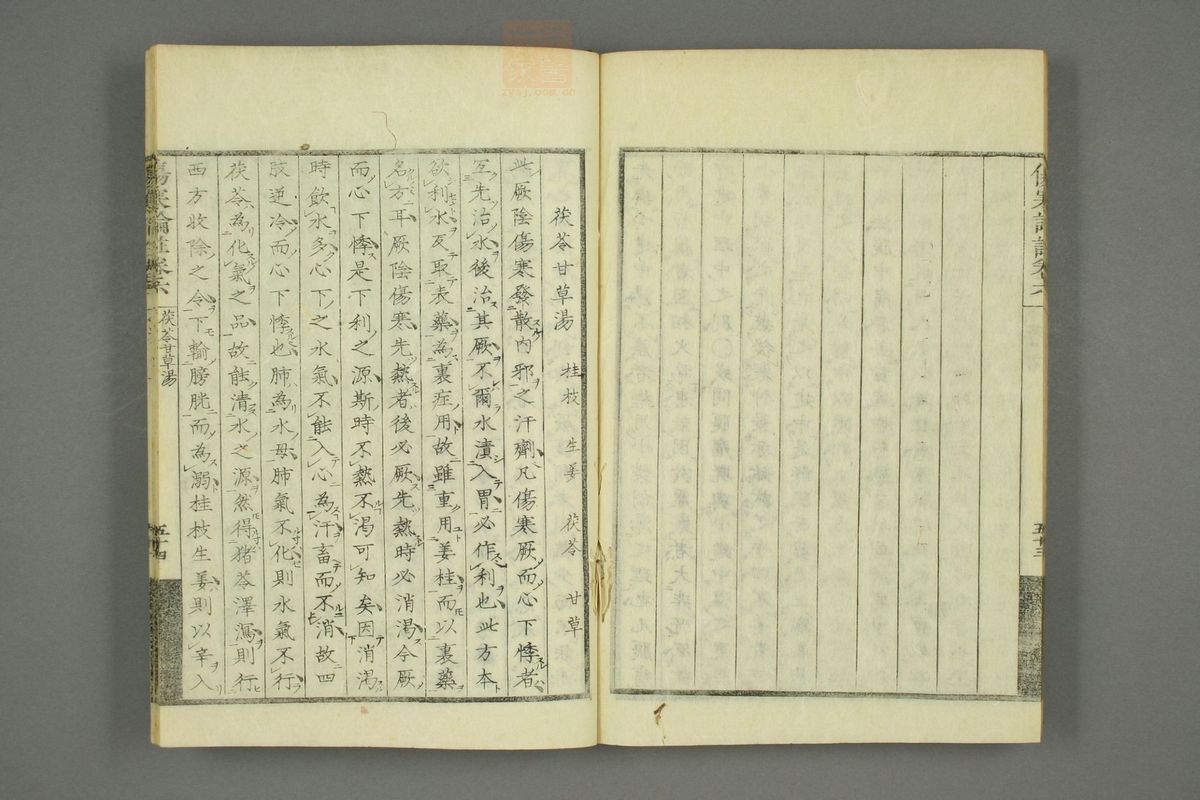 茯苓甘草湯
桂枝 生姜 茯苓 甘草
此厥陰傷寒發散內邪之汗劑凡傷寒厥而心下悸者
宜先治水後治其厥不爾水漬入胃必作利也此方本
欲利水反取表藥為裏症用故雖重用姜桂而以裏藥
名方耳厥陰傷寒先熱者後必厥先熱時必消渴今厥
而心下悸是下利之源斯時不熱不渴可知矣因消渴
時飲水多心下之水氣不能入心為汗畜而不消故四
肢逆冷而心下悸也肺為水母肺氣不化則水氣不行
茯苓為化氣之品故能清水之源然得猪苓澤瀉則行
西方收除之令下輸膀胱而為溺桂枝生姜則以辛入
傷寒論註卷六
茯苓甘草湯
五十四
五十三
zysj.com.cn